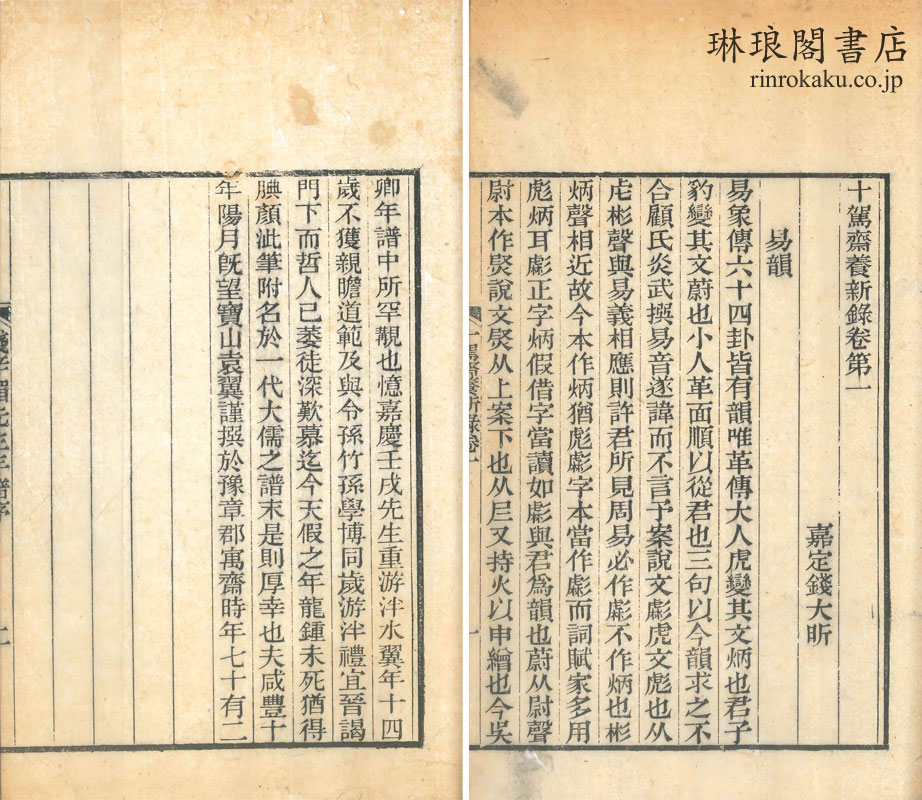 琳琅閣書店
rinrokaku.co.jp
十駕齋養新錄卷第一
嘉定錢大昕
易韻
易象傳六十四卦皆有韻唯革傳大人虎變其文炳也君子
豹變其文蔚也小人革面順以從君也三句以今韻求之不
合顧氏炎武撰易音遂諱而不言予案說文虨虎文彪也从
虍彬聲與易義相應則許君所見周易必作虨不作炳也彬
炳聲相近故今本作炳猶彪虨字本當作虨而詞賦家多用
彪炳耳虨正字炳假借字當讀如虨與君爲韻也蔚从尉聲
尉本作㷉說文㷉从上案下也从𡰥又持火以申繒也今吳
十駕齋養新錄卷一
一
卿年譜中所罕覯也憶嘉慶壬戌先生重游泮水翼年十四
歲不獲親瞻道範及與令孫竹孫學博同歲游泮禮宜晉謁
門下而哲人已萎徒深歎慕迄今天假之年龍鍾未死猶得
腆顏泚筆附名於一代大儒之譜末是則厚幸也夫咸豐十
年陽月旣望寶山袁翼謹撰於豫章郡寓齋時年七十有二